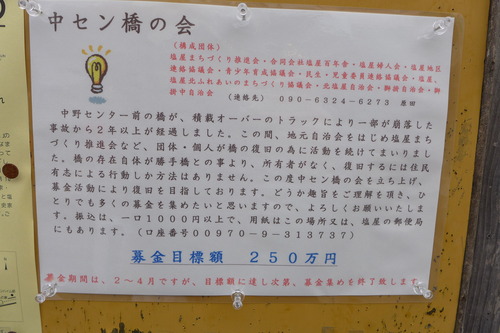 中セン橋の会
(構成団体)
塩屋まちづくり推進会・合同会社塩屋百年舎・塩屋婦人会・塩屋地区
連絡協議会・青少年育成協議会・民生・児童委員連絡協議会・塩屋、
塩屋北ふれあいのまちづくり協議会・北塩屋自治会・獅掛自治会・獅
掛中自治会 (連絡先) 090-6324-6273 原田
中野センター前の橋が、積載オーバーのトラックにより一部が崩落した
事故から2年以上が経過しました。この間、地元自治会をはじめ塩屋まち
づくり推進会など、団体・個人が橋の復旧の為に活動を続けてまいりまし
た。橋の存在自体が勝手橋との事より、所有者がなく、復旧するには住民
有志による行動しか方法はありません。この度中セン橋の会を立ち上げ、
募金活動により復旧を目指しております。どうか趣旨をご理解を頂き、ひ
とりでも多くの募金を集めたいと思いますので、よろしくお願いいたしま
す。振込は、一口1000円以上で、用紙はこの場所又は、塩屋の郵便局
にもあります。(口座番号00970-9-313737)
募金目標額 250万円
募金期間は、2~4月ですが、目標額に達し次第、募金集めを終了致します